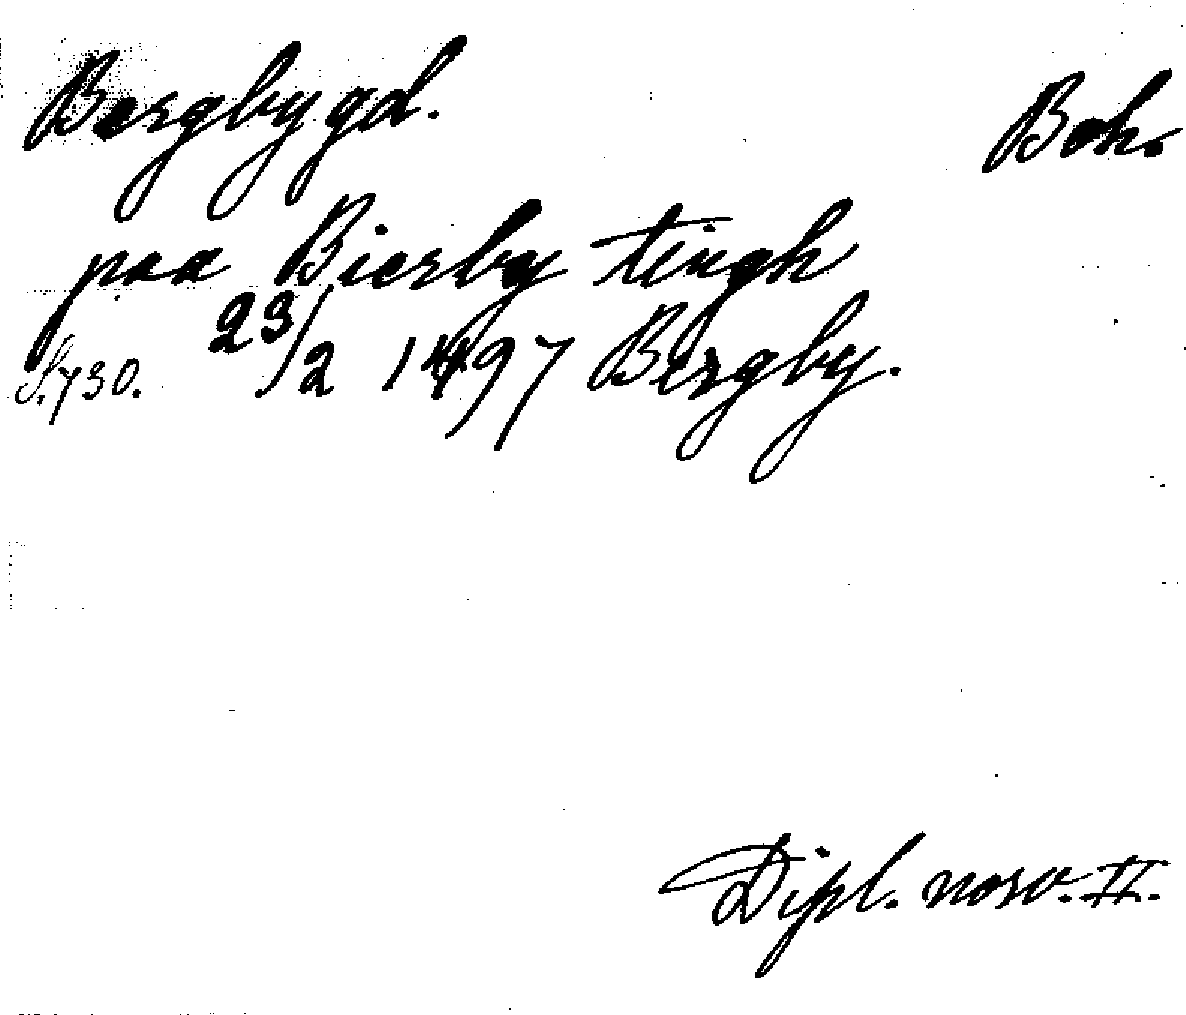 Bergbygd. Boh.
paa Bierby tingh
S. 730. 23/2 1497 Bergby.
Dipl. norv. II.